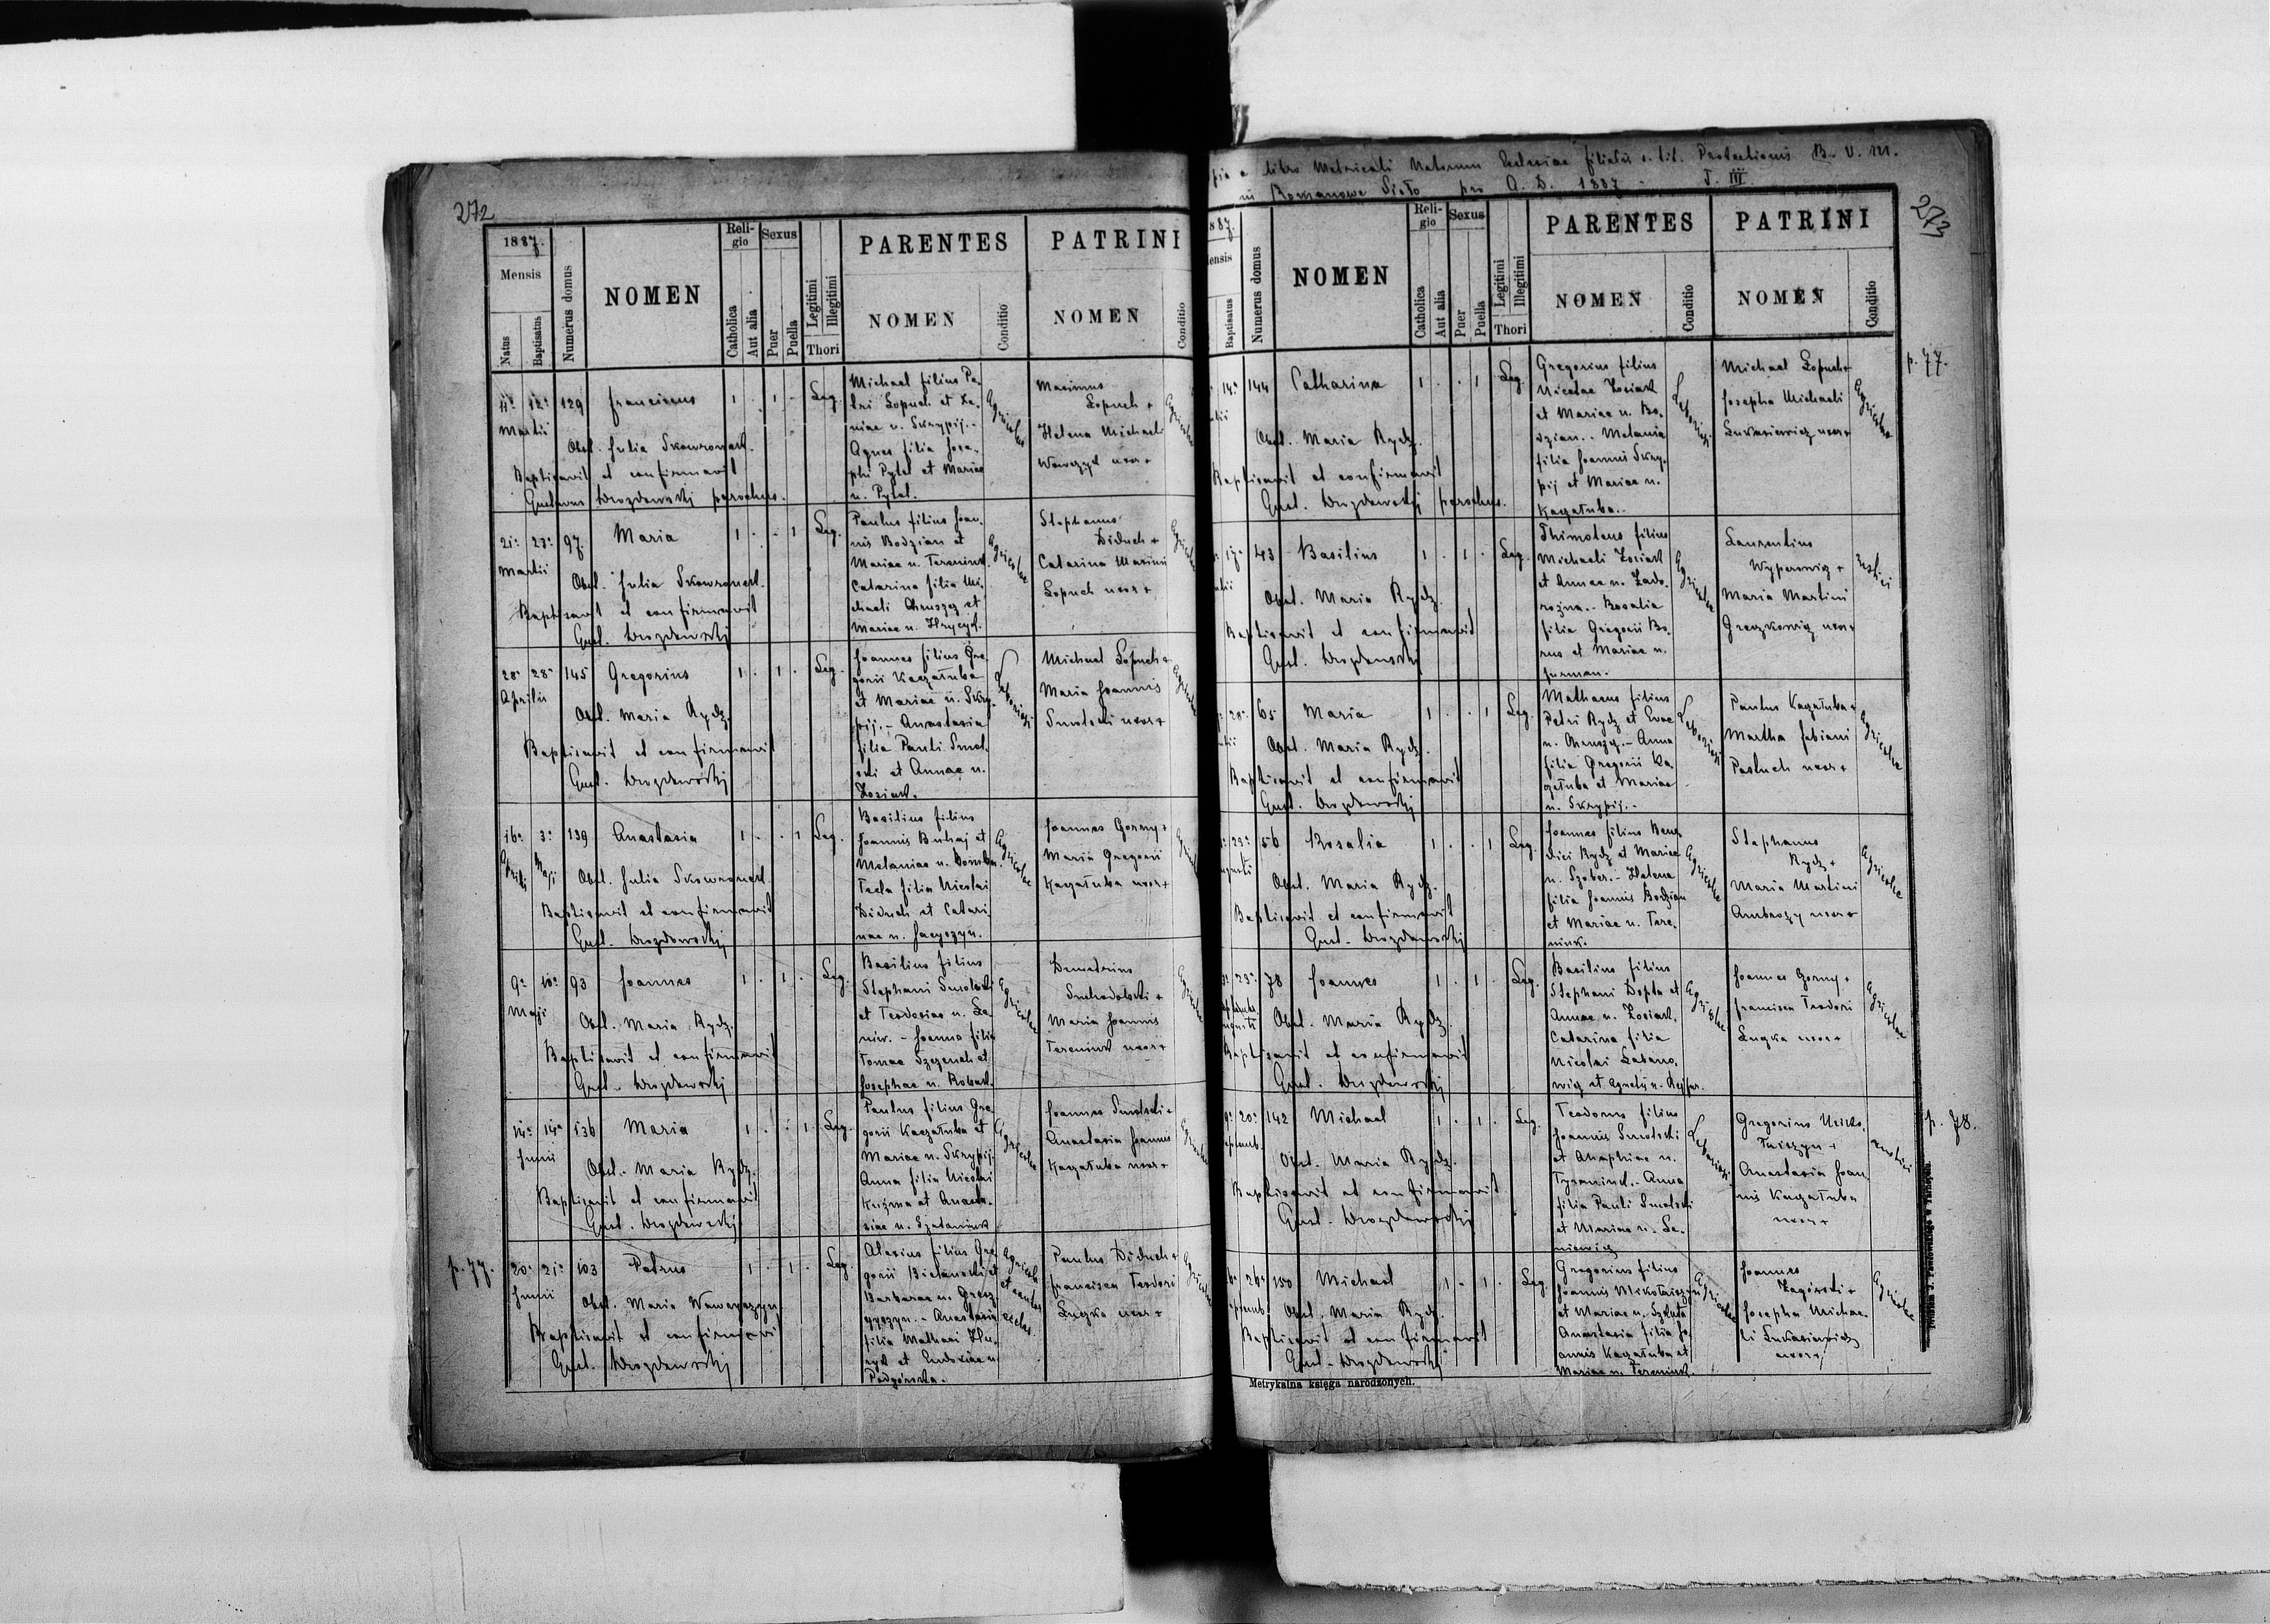 272
1887.
Mensis
Natus
Baptisatus
Numerus domus
NOMEN
Reli-
gio
Catholica
Aut alia
Sexus
Puer
Puella
Legitimi
Illegitimi
Thori
PARENTES
NOMEN
Conditio
PATRINI
NOMEN
Conditio
11a 12a 129 Franciscus 1 . 1 - Leg.
Martii
Obst. Julia Skowronek.
Baptisavit et confirmavit
Gustavus Drozdowskij parochus.
Michael filius Pe-
tri Łopuch et Xe-
niae n. Skrypij. -
Agnes filia Jose-
phi Pytel et Mariae
n. Pytel.
Agricolae
Maximus
Łopuch +
Helena Michaeli
Wawczyk uxor +
21a 23a 97 Maria 1 . - 1 Leg.
Martii
Obst. Julia Skowronek.
Baptisavit et confirmavit
Gust. Drozdowskij
Paulus filius Joan-
nis Bodzian et
Mariae n. Tereniuk.
Catarina filia Mi-
chaeli Chruszcz et
Mariae n. Hrycyk.
Agricolae
Stephanus
Diduch +
Catarina Maximi
Łopuch uxor +
28a 28a 145 Gregorius 1 . 1 . Leg.
Aprilis
Obst. Maria Rydz.
Baptisavit et confirmavit
Gust. Drozdowskij
Joannes filius Gre-
gorii Kaczałuba
et Mariae n. Skry-
pij. - Anastasia
filia Pauli Smol-
ski et Annae n.
Łosiak.
Laboriosi
Michael Łopuch +
Maria Joannis
Smolski uxor +
16a 3a 139 Anastasia 1 . . 1 Leg.
Aprilis Maji
Obst. Julia Skowronek.
Baptisavit et confirmavit
Gust. Drozdowskij
Basilius filius
Joannis Buhaj et
Melaniae n.
Tecla filia Nicolai
Diduch et Catari-
nae n. Jacyszyn.
Agricolae
Joannes Gorny +
Maria Gregorii
Kaczałuba uxor +
9a 10a 93 Joannes 1 . 1 . Leg.
Maji
Obst. Maria Rydz.
Baptisavit et confirmavit
Gust. Drozdowskij
Basilius filius
Stephani Smolski
et Teodosiae n. Le-
niw. - Joanna filia
Tomae et
Josephae n.
Agricolae
Demetrius
Suchodolski +
Maria Joannis
Tereniuk uxor +
14a 14a 136 Maria 1 . . 1 . Leg.
Junii
Obst. Maria Rydz.
Baptisavit et confirmavit
Gust. Drozdowskij
Paulus filius Gre-
gorii Kaczałuba et
Mariae n. Skrypij.
Anna filia Nicolai
Kuzma et Anasta-
siae n.
Agricolae
Joannes Smolski +
Anastasia Joannis
Kaczałuba uxor +
p. 77.
20a 21a 103 Petrus 1 . 1 . Leg.
Junii
Obst. Maria Wawryszyn.
Baptisavit et confirmavit
Gust. Drozdowskij
Alexius filius Gre-
gorii Bielanski et
Barbarae n.
Anastasia
filia Mathaei
et Eudoxiae n.
Podgórska.
Agricola
et cantor
eccles.
Paulus Diduch +
Francisca Teodori
Łuczka uxor +
pia e libro Metricali Natorum Ecclesiae filialis s. tit. Protectionis B. V. M.
Romanowe Sioło pro A. D. 1887 - T. III.
273
887.
ensis
Baptisatus
Numerus domus
NOMEN
Reli-
gio
Catholica
Aut alia
Sexus
Puer
Puella
Legitimi
Illegitimi
Thori
PARENTES
NOMEN
Conditio
PATRINI
NOMEN
Conditio
p. 77.
14a 144 Catharina 1 . . 1 Leg.
Obst. Maria Rydz.
Baptisavit et confirmavit
Gust. Drozdowskij parochus.
Gregorius filius
Nicolae Łosiak
et Mariae n. Bo-
dzian. - Melania
filia Joannis Skry-
pij et Mariae n.
Kaczałuba. -
Laboriosi
Michael Łopuch +
Josepha Michaeli
Łukasiewicz uxor +
Agricolae
17a 43 Basilius 1 . 1 . Leg.
Obst. Maria Rydz.
Baptisavit et confirmavit
Gust. Drozdowskij
Thimoteus filius
Michaeli Łosiak
et Annae n. Zado-
rożna. - Rosalia
filia Gregorii Bo-
rus et Mariae n.
Furman.
Agricolae
Laurentius
Wyperowicz +
Maria Martini
Greczkowicz uxor +
rustici
28a 65 Maria 1 . . 1 Leg.
Obst. Maria Rydz.
Baptisavit et confirmavit
Gust. Drozdowskij
Mathaeus filius
Petri Rydz et Evae
n. Chruszcz. - Anna
filia Gregorii Ka-
czałuba et Mariae
n. Skrypij. -
Laboriosi
Paulus Kaczałuba +
Martha Fabiani
Pastuch uxor +
Agricolae
23a 56 Rosalia 1 . . 1 Leg.
Obst. Maria Rydz.
Baptisavit et confirmavit
Gust. Drozdowskij
Joannes filius Bene-
dici Rydz et Mariae
n. Szober. - Helena
filia Joannis Bodzian
et Mariae n. Tere-
niuk.
Agricolae
Stephanus
Rydz +
Maria Martini
Ambrozy uxor +
Agricolae
23a 78 Joannes 1 . 1 . Leg.
Obst. Maria Rydz.
Baptisavit et confirmavit
Gust. Drozdowskij
Basilius filius
Stephani Dopta et
Annae n. Łosiak.
Catarina filia
Nicolai Łabano-
wicz et Agnetis n.
Agricolae
Joannes Gorny +
Francisca Teodori
Łuczka uxor +
Agricolae
p. 78.
20a 142 Michael 1 . 1 . Leg.
Obst. Maria Rydz.
Baptisavit et confirmavit
Gust. Drozdowskij
Teodorus filius
Joannis Smolski
et n.
Tyraniuk. - Anna
filia Pauli Smolski
et Mariae n. Le-
niewicz
Laboriosi
Gregorius Miko-
łaiszyn +
Anastasia Joan-
nis Kaczałuba
uxor +
rustici
26a 150 Michael 1 . 1 . Leg.
Obst. Maria Rydz.
Baptisavit et confirmavit
Gust. Drozdowskij
Gregorius filius
Joannis Mikołaiszyn
et Mariae n.
Anastasia filia Jo-
annis Kaczałuba et
Mariae n. Tereniuk.
Agricolae
Joannes
Zagórski +
Josepha Michae-
li Łukasiewicz
uxor +
Agricolae
Metrykalna księga narodzonych.